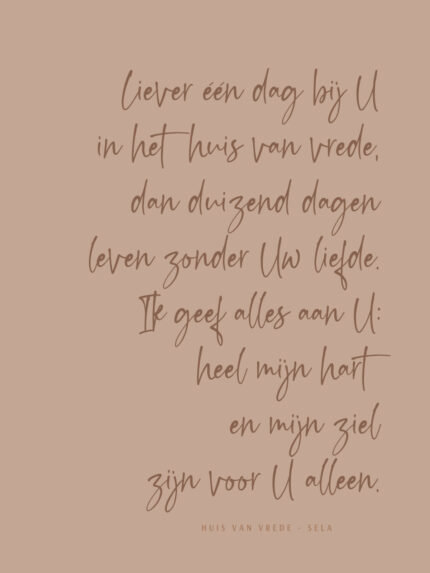 liever één dag bij U
in het huis van vrede,
dan duizend dagen
leven zonder Uw liefde.
Ik geef alles aan U:
heel mijn hart
en mijn ziel
zijn voor U alleen.
HUIS VAN VREDE - SELA